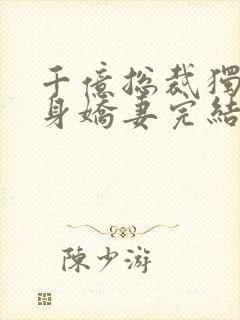 千億總裁獨
身嬌妻完結
陳少游